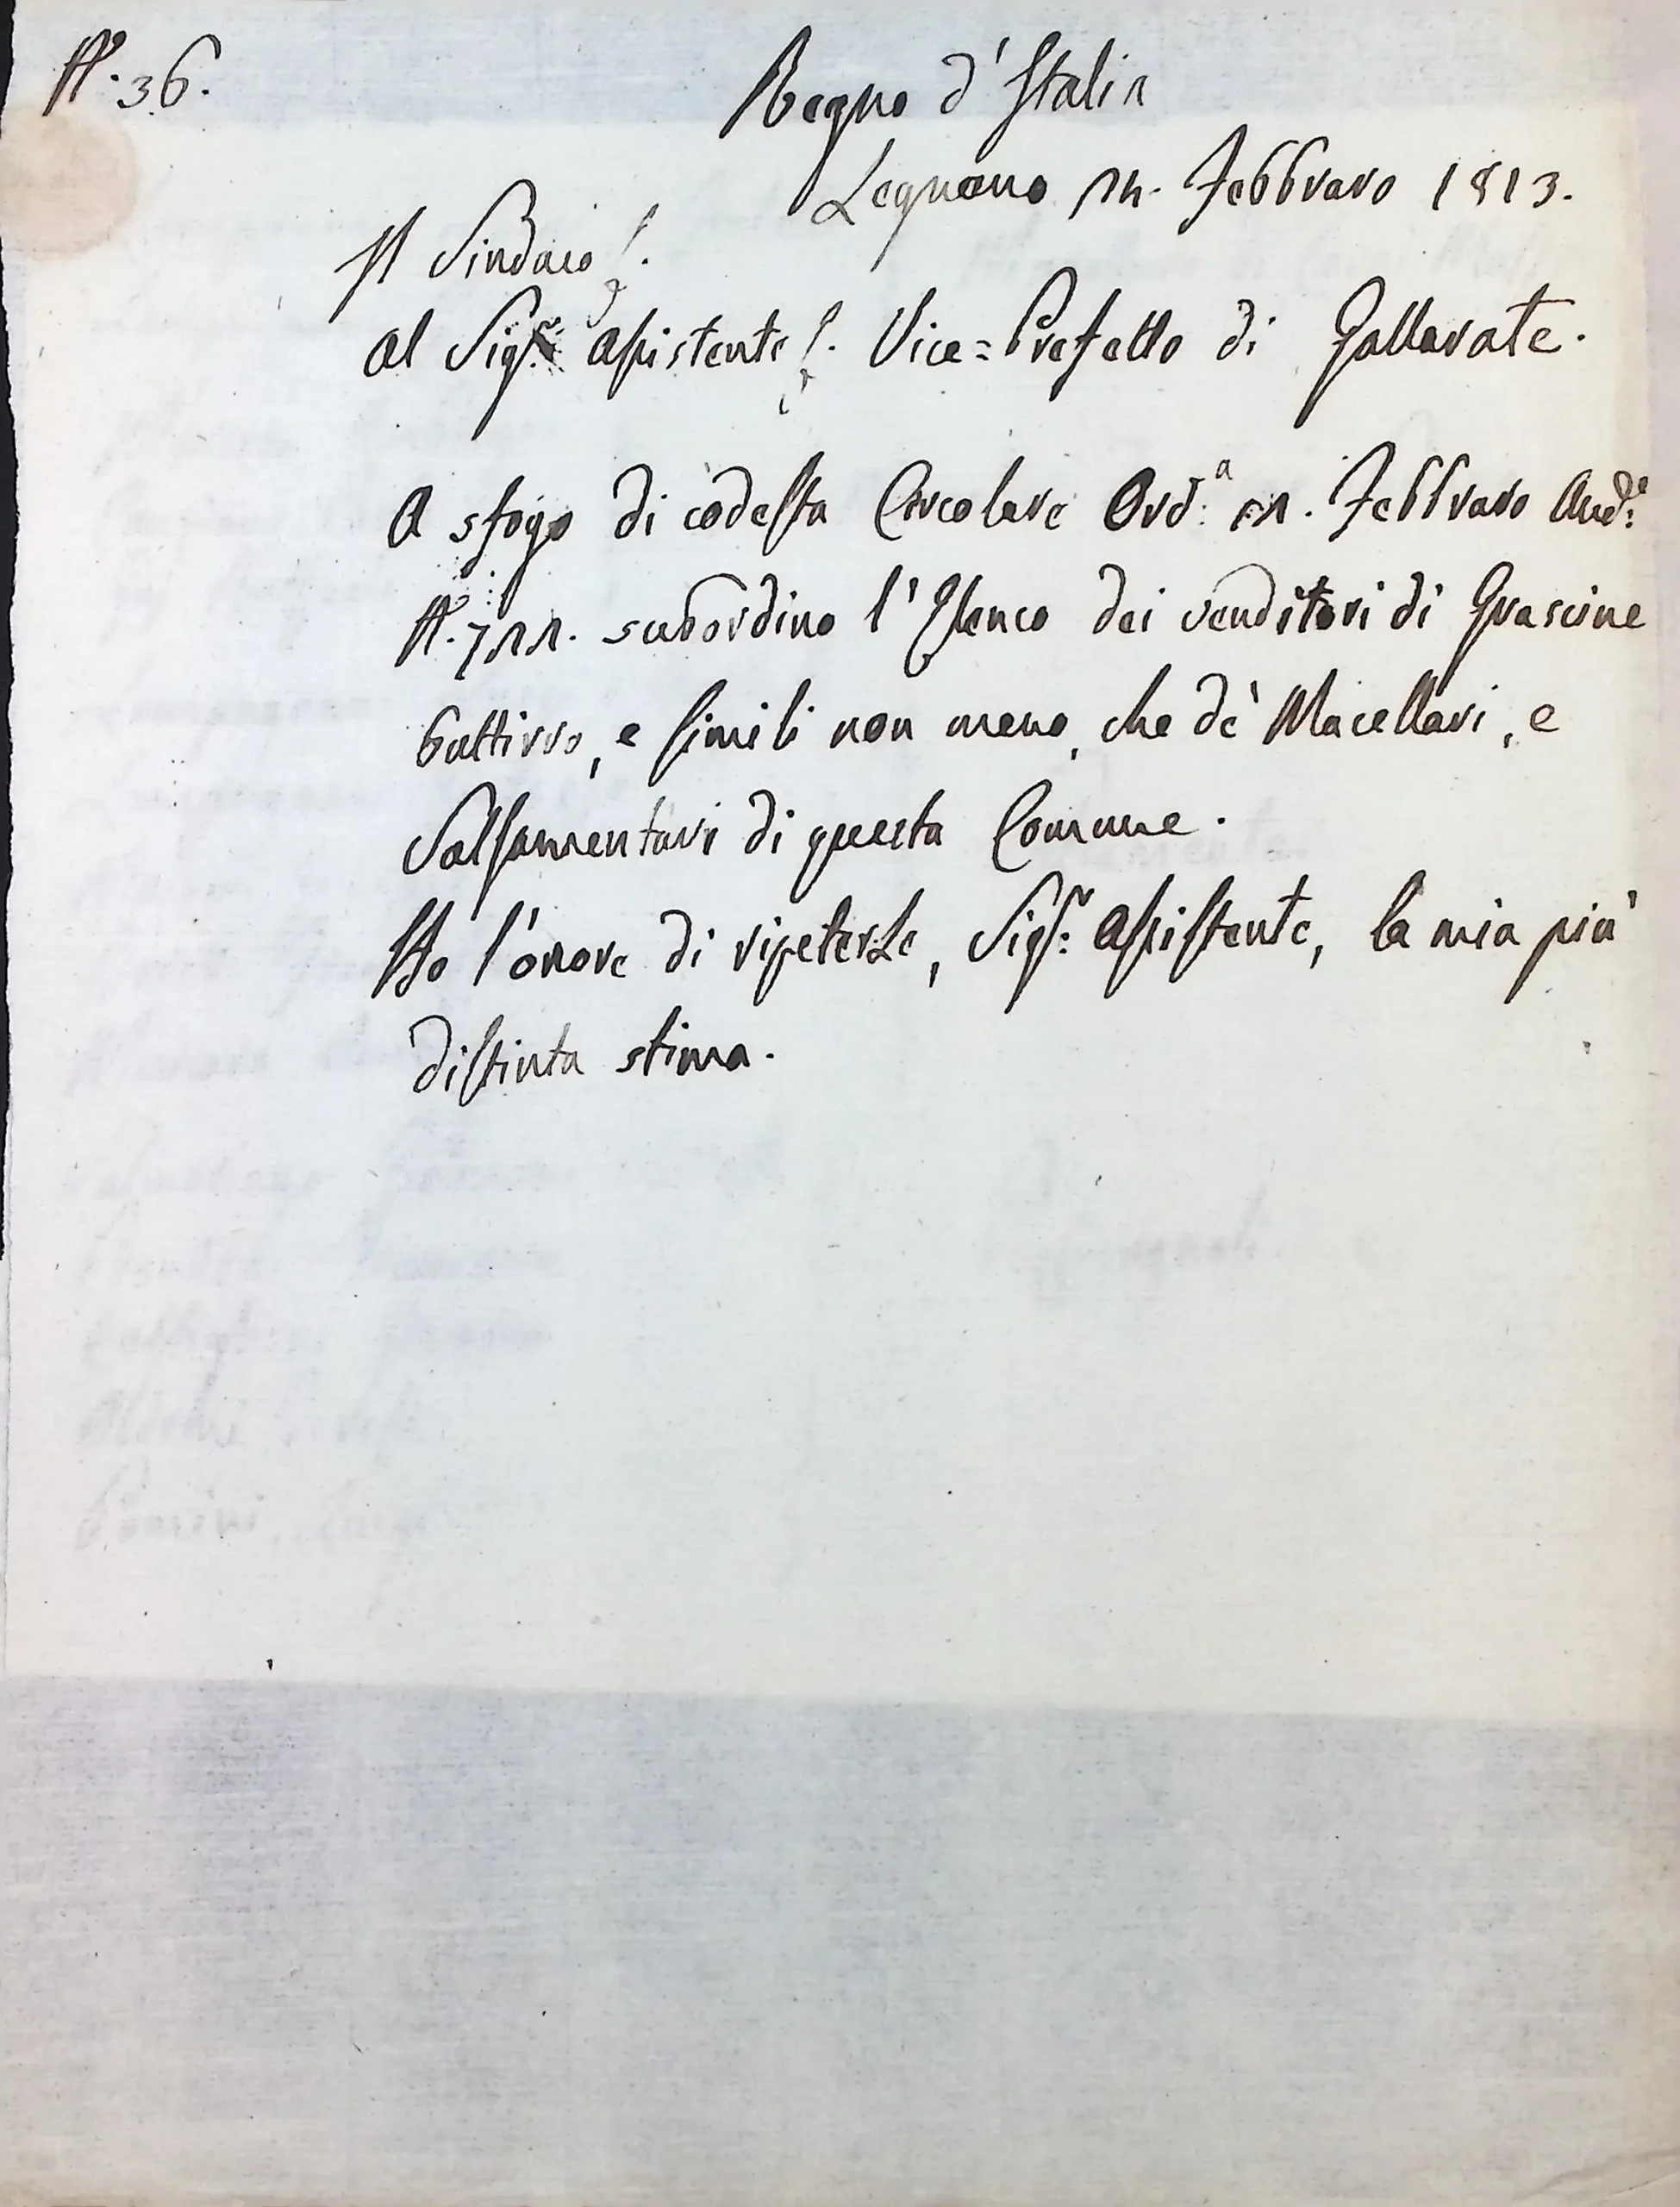 N.° 36.
Regno d'Italia
Legnano Febbraro 1813.
Il Sindaco
Al Sig.r Assistente Vice=Prefetto di Gallarate.
A sfogo di codesta Circolare Ord.a Febbraro And.e
N.° subordino l'Elenco dei venditori di Grascine
buttirro, e simili non meno, che de' Macellari, e
Salsamentari di questa Comune.
Ho l'onore di ripeterLe, Sig.r Assistente, la mia più
distinta stima.